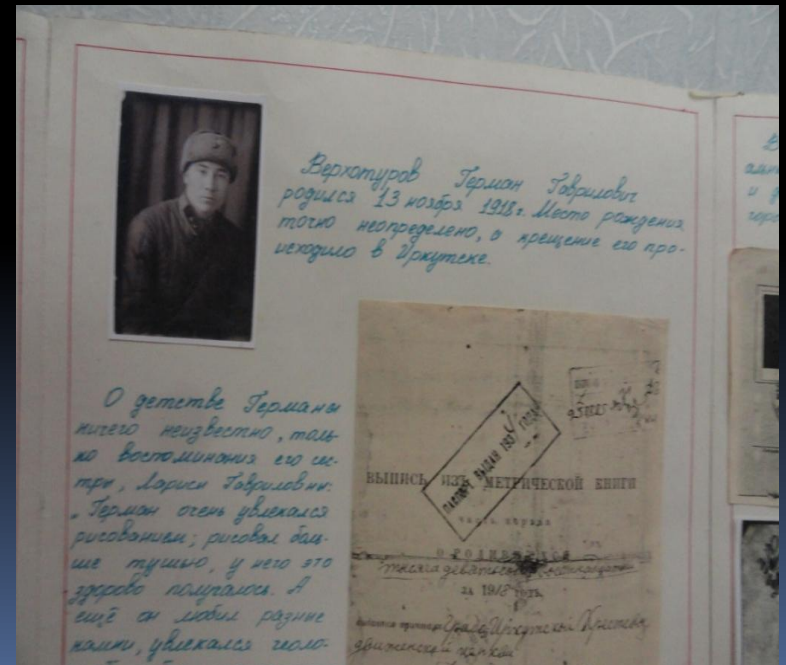 Верхотуров Герман Гаврилович
родился 13 ноября 1918 г. Место рождения
точно неопределено, а крещение его про-
исходило в Иркутске.
О детстве Германа
ничего неизвестно, толь-
ко воспоминания его сес-
тры, Ларисы Гавриловны:
„Герман очень увлекался
рисованием; рисовал боль-
ше тушью, у него это
здорово получалось. А
ещё он любил разные
камни, увлекался геоло-
ПАСПОРТ ВЫДАН 1937 ГОДА
ВЫПИСЬ ИЗЪ МЕТРИЧЕСКОЙ КНИГИ
часть первая
О РОДИВШИХСЯ
тысяча девятьсот восемнадцатый
за 1918 годъ
Града Иркутской Крестовоз
движенской церкви